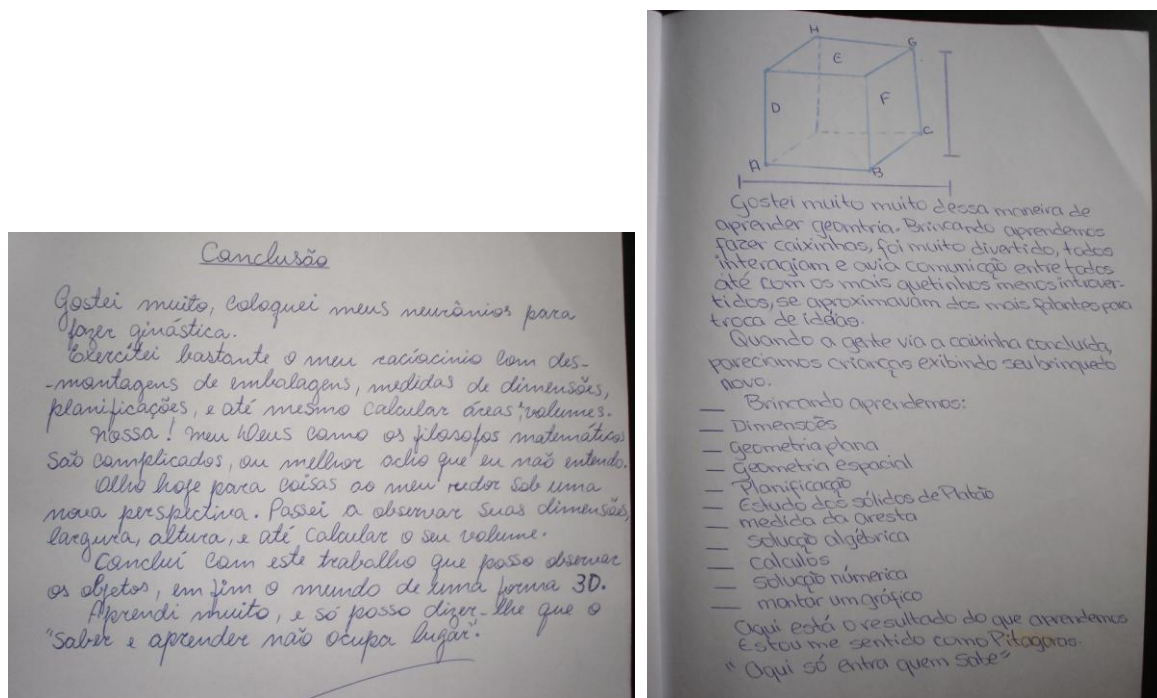 Conclusão
Gostei muito, coloquei meus neurônios para
fazer ginástica.
Exercitei bastante o meu raciacinio com des-
-montagens de embalagens, medidas de dimensões,
planificações, e até mesmo calcular áreas, volumes.
Nossa! Meu Deus como os filosofos matemáticos
são complicados, ou melhor acho que eu não entendo.
Olho hoje para coisas ao meu redor sob uma
nova perspectiva. Passei a observar suas dimensão,
largura, altura, e até calcular o seu volume.
Concluí com este trabalho que posso observar
os objetos, em fim o mundo de uma forma 3D.
Aprendi muito, e só posso dizer-lhe que o
"Saber e aprender não ocupa lugar".
H
G
E
D
F
C
A
B
Gostei muito muito dessa maneira de
aprender geomtria. Brincando aprendemos
fazer caixinhas, foi muito divertido, todos
interagiam e avia comunicação entre todos
até com os mais quetinhos menos introver-
tidos, se aproximavam dos mais falantes para
troca de idéias.
Quando a gente via a caixinha concluída,
pareciamos crianças exibindo seu brinquedo
novo.
— Brincando aprendemos:
— Dimensões
— geometria plana
— geometria espacial
— Planificação
— Estudo dos sólidos de Platão
— medida da aresta
— solucção algébrica
— calculos
— solucção númerica
— montar um gráfico
Aqui está o resultado do que aprendemos
Estou me sentido como Pitagoras.
"Aqui só entra quem sabe"